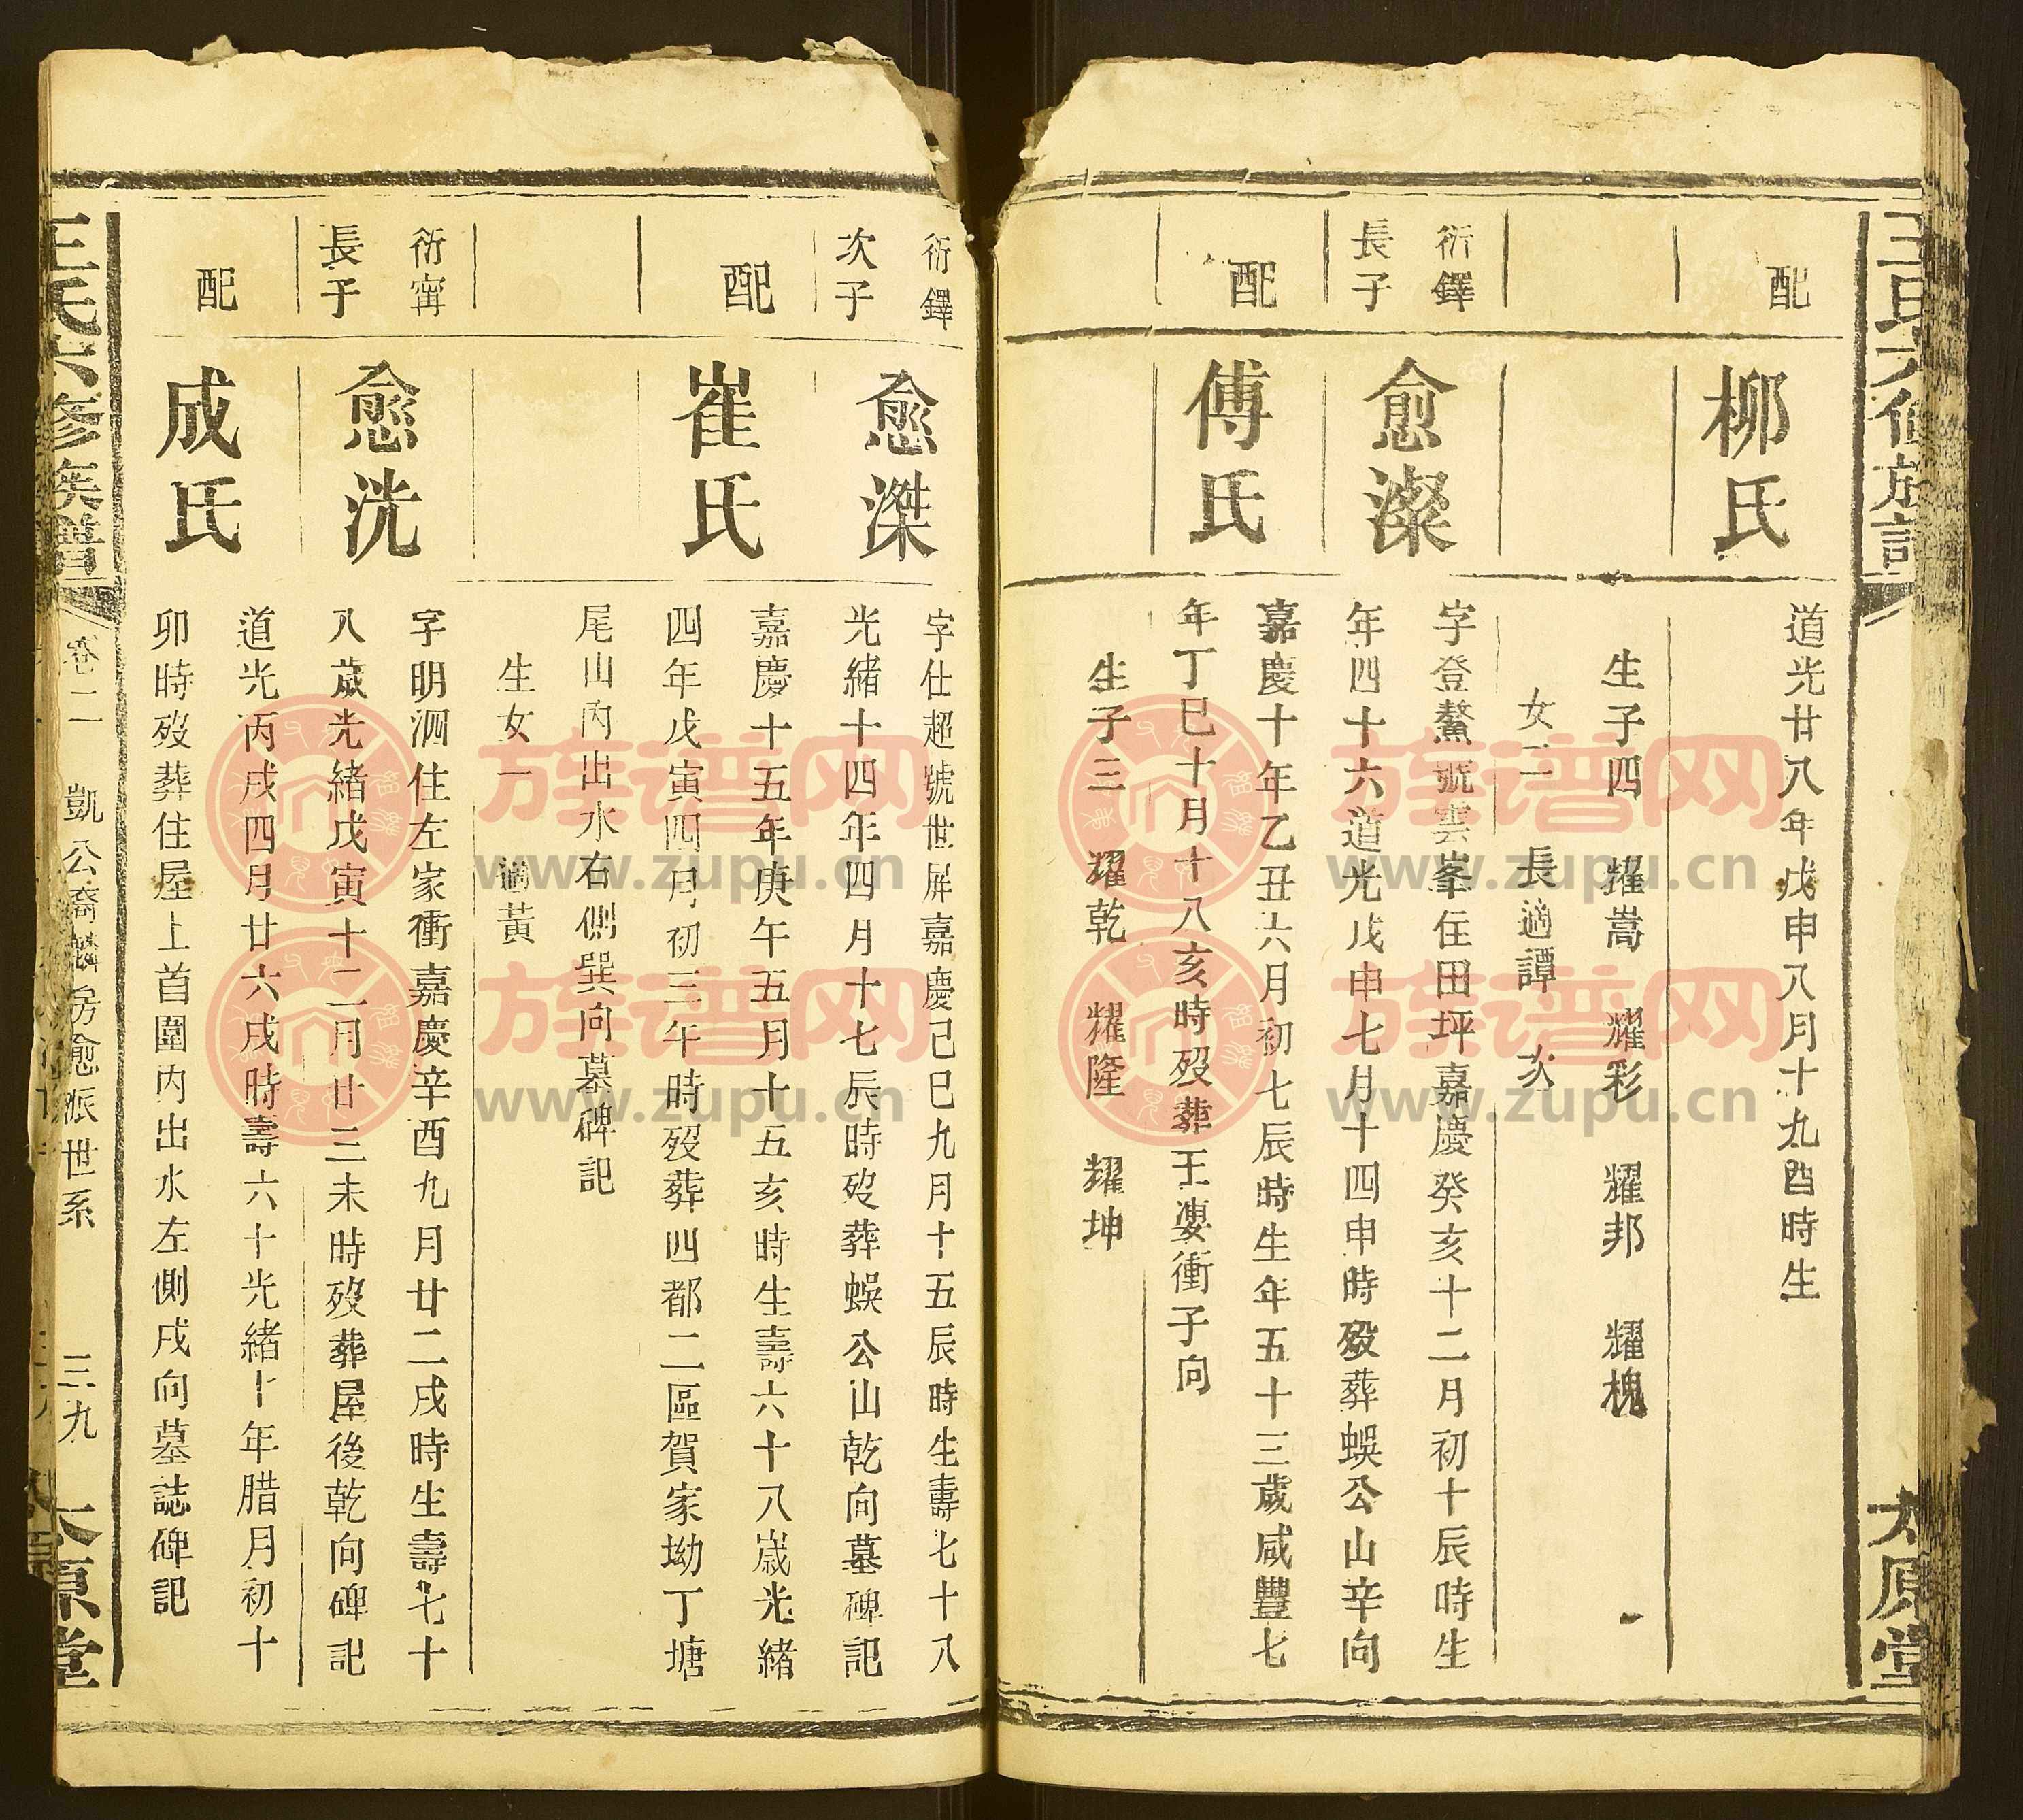 王氏六修族譜
太原堂
配
柳氏
道光廿八年戊申八月十九酉時生
生子四 耀嵩 耀彩 耀邦 耀槐
女二 長適譚 次
衍鐸
長子
愈澯
字登鰲號雲峯住田坪嘉慶癸亥十二月初十辰時生
年四十六道光戊申七月十四申時歿葬蜈公山辛向
配
傅氏
嘉慶十年乙丑六月初七辰時生年五十三歲咸豐七
年丁巳十月十八亥時歿葬王婆衝子向
生子三 耀乾 耀隆 耀坤
衍鐸
次子
愈滐
字仕超號世屏嘉慶己巳九月十五辰時生壽七十八
光緒十四年四月十七辰時歿葬蜈公山乾向墓碑記
配
崔氏
嘉慶十五年庚午五月十五亥時生壽六十八歲光緒
四年戊寅四月初三午時歿葬四都二區賀家坳丁塘
尾山內出水右側巽向墓碑記
生女一 適黃
衍甯
長子
愈洸
字明泗住左家衝嘉慶辛酉九月廿二戌時生壽七十
八歲光緒戊寅十二月廿三未時歿葬屋後乾向碑記
配
成氏
道光丙戌四月廿六戌時壽六十光緒十年腊月初十
卯時歿葬住屋上首圍內出水左側戌向墓誌碑記
王氏六修族譜
卷二 凱公裔麟房愈派世系 三九
太原堂
族谱网
www.zupu.cn
族谱网
www.zupu.cn
族谱网
www.zupu.cn
族谱网
www.zupu.cn